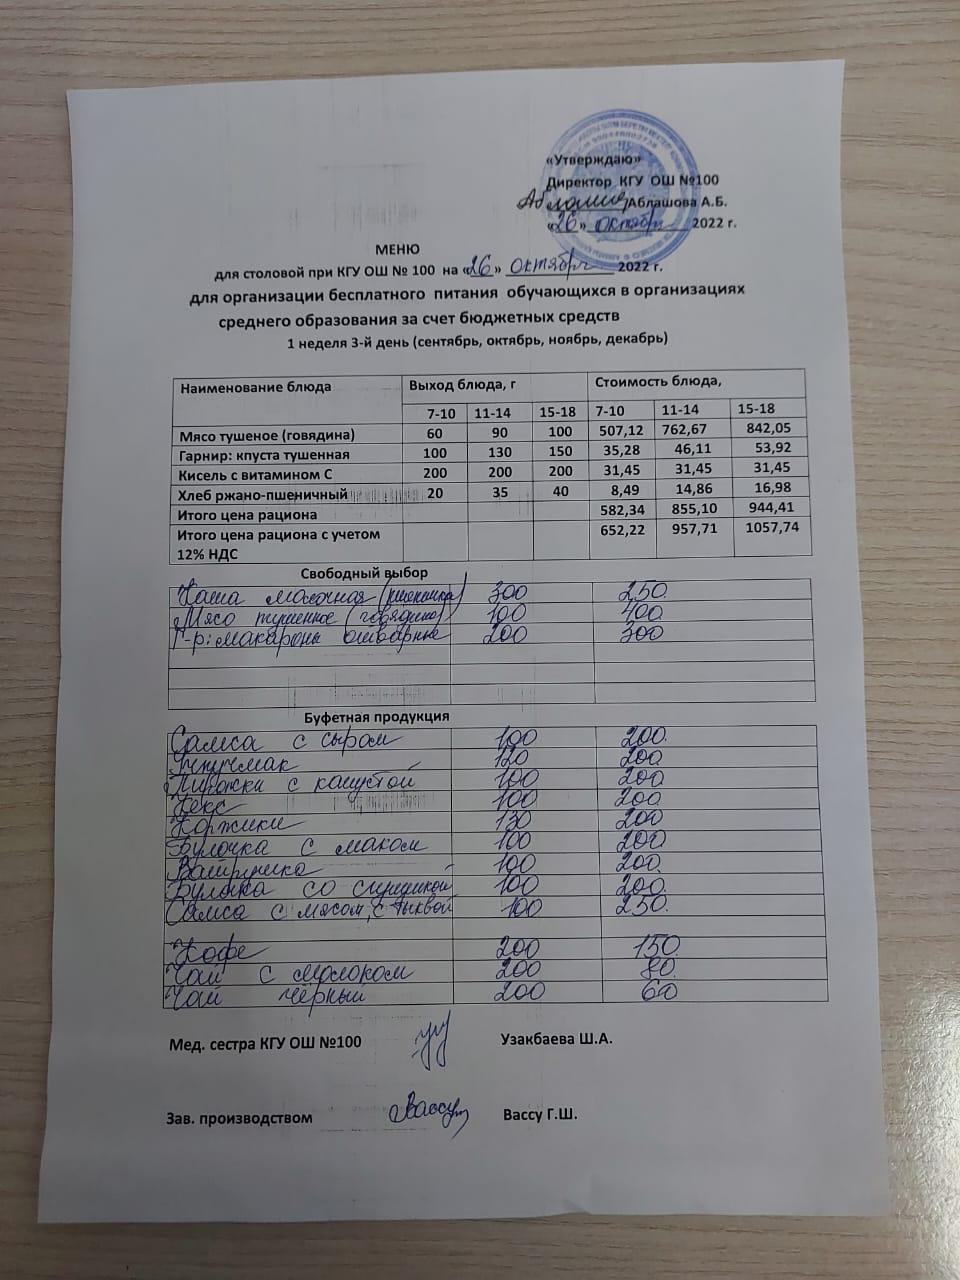 «Утверждаю»
Директор КГУ ОШ №100
Аблашова А.Б.
«26» октября 2022 г.
МЕНЮ
для столовой при КГУ ОШ № 100 на «26» октября 2022 г.
для организации бесплатного питания обучающихся в организациях
среднего образования за счет бюджетных средств
1 неделя 3-й день (сентябрь, октябрь, ноябрь, декабрь)
Наименование блюда Выход блюда, г Стоимость блюда,
7-10 11-14 15-18 7-10 11-14 15-18
Мясо тушеное (говядина) 60 90 100 507,12 762,67 842,05
Гарнир: кпуста тушенная 100 130 150 35,28 46,11 53,92
Кисель с витамином С 200 200 200 31,45 31,45 31,45
Хлеб ржано-пшеничный 20 35 40 8,49 14,86 16,98
Итого цена рациона 582,34 855,10 944,41
Итого цена рациона с учетом 652,22 957,71 1057,74
12% НДС
Свободный выбор
Каша молочная (пшеничка) 300 250
Мясо тушенное (говядина) 100 400
Г-р: макароны отварные 200 300
Буфетная продукция
Самса с сыром 100 200
Учпучмак 120 200
Пирожки с капустой 100 200
Кекс 100 200
Коржики 130 200
Булочка с маком 100 200
Ватрушка 100 200
Булочка со сгущенкой 100 200
Самса с мясом, с тыквой 100 250
Кофе 200 150
Чай с молоком 200 80
Чай чёрный 200 60
Мед. сестра КГУ ОШ №100 Узакбаева Ш.А.
Зав. производством Вассу Вассу Г.Ш.